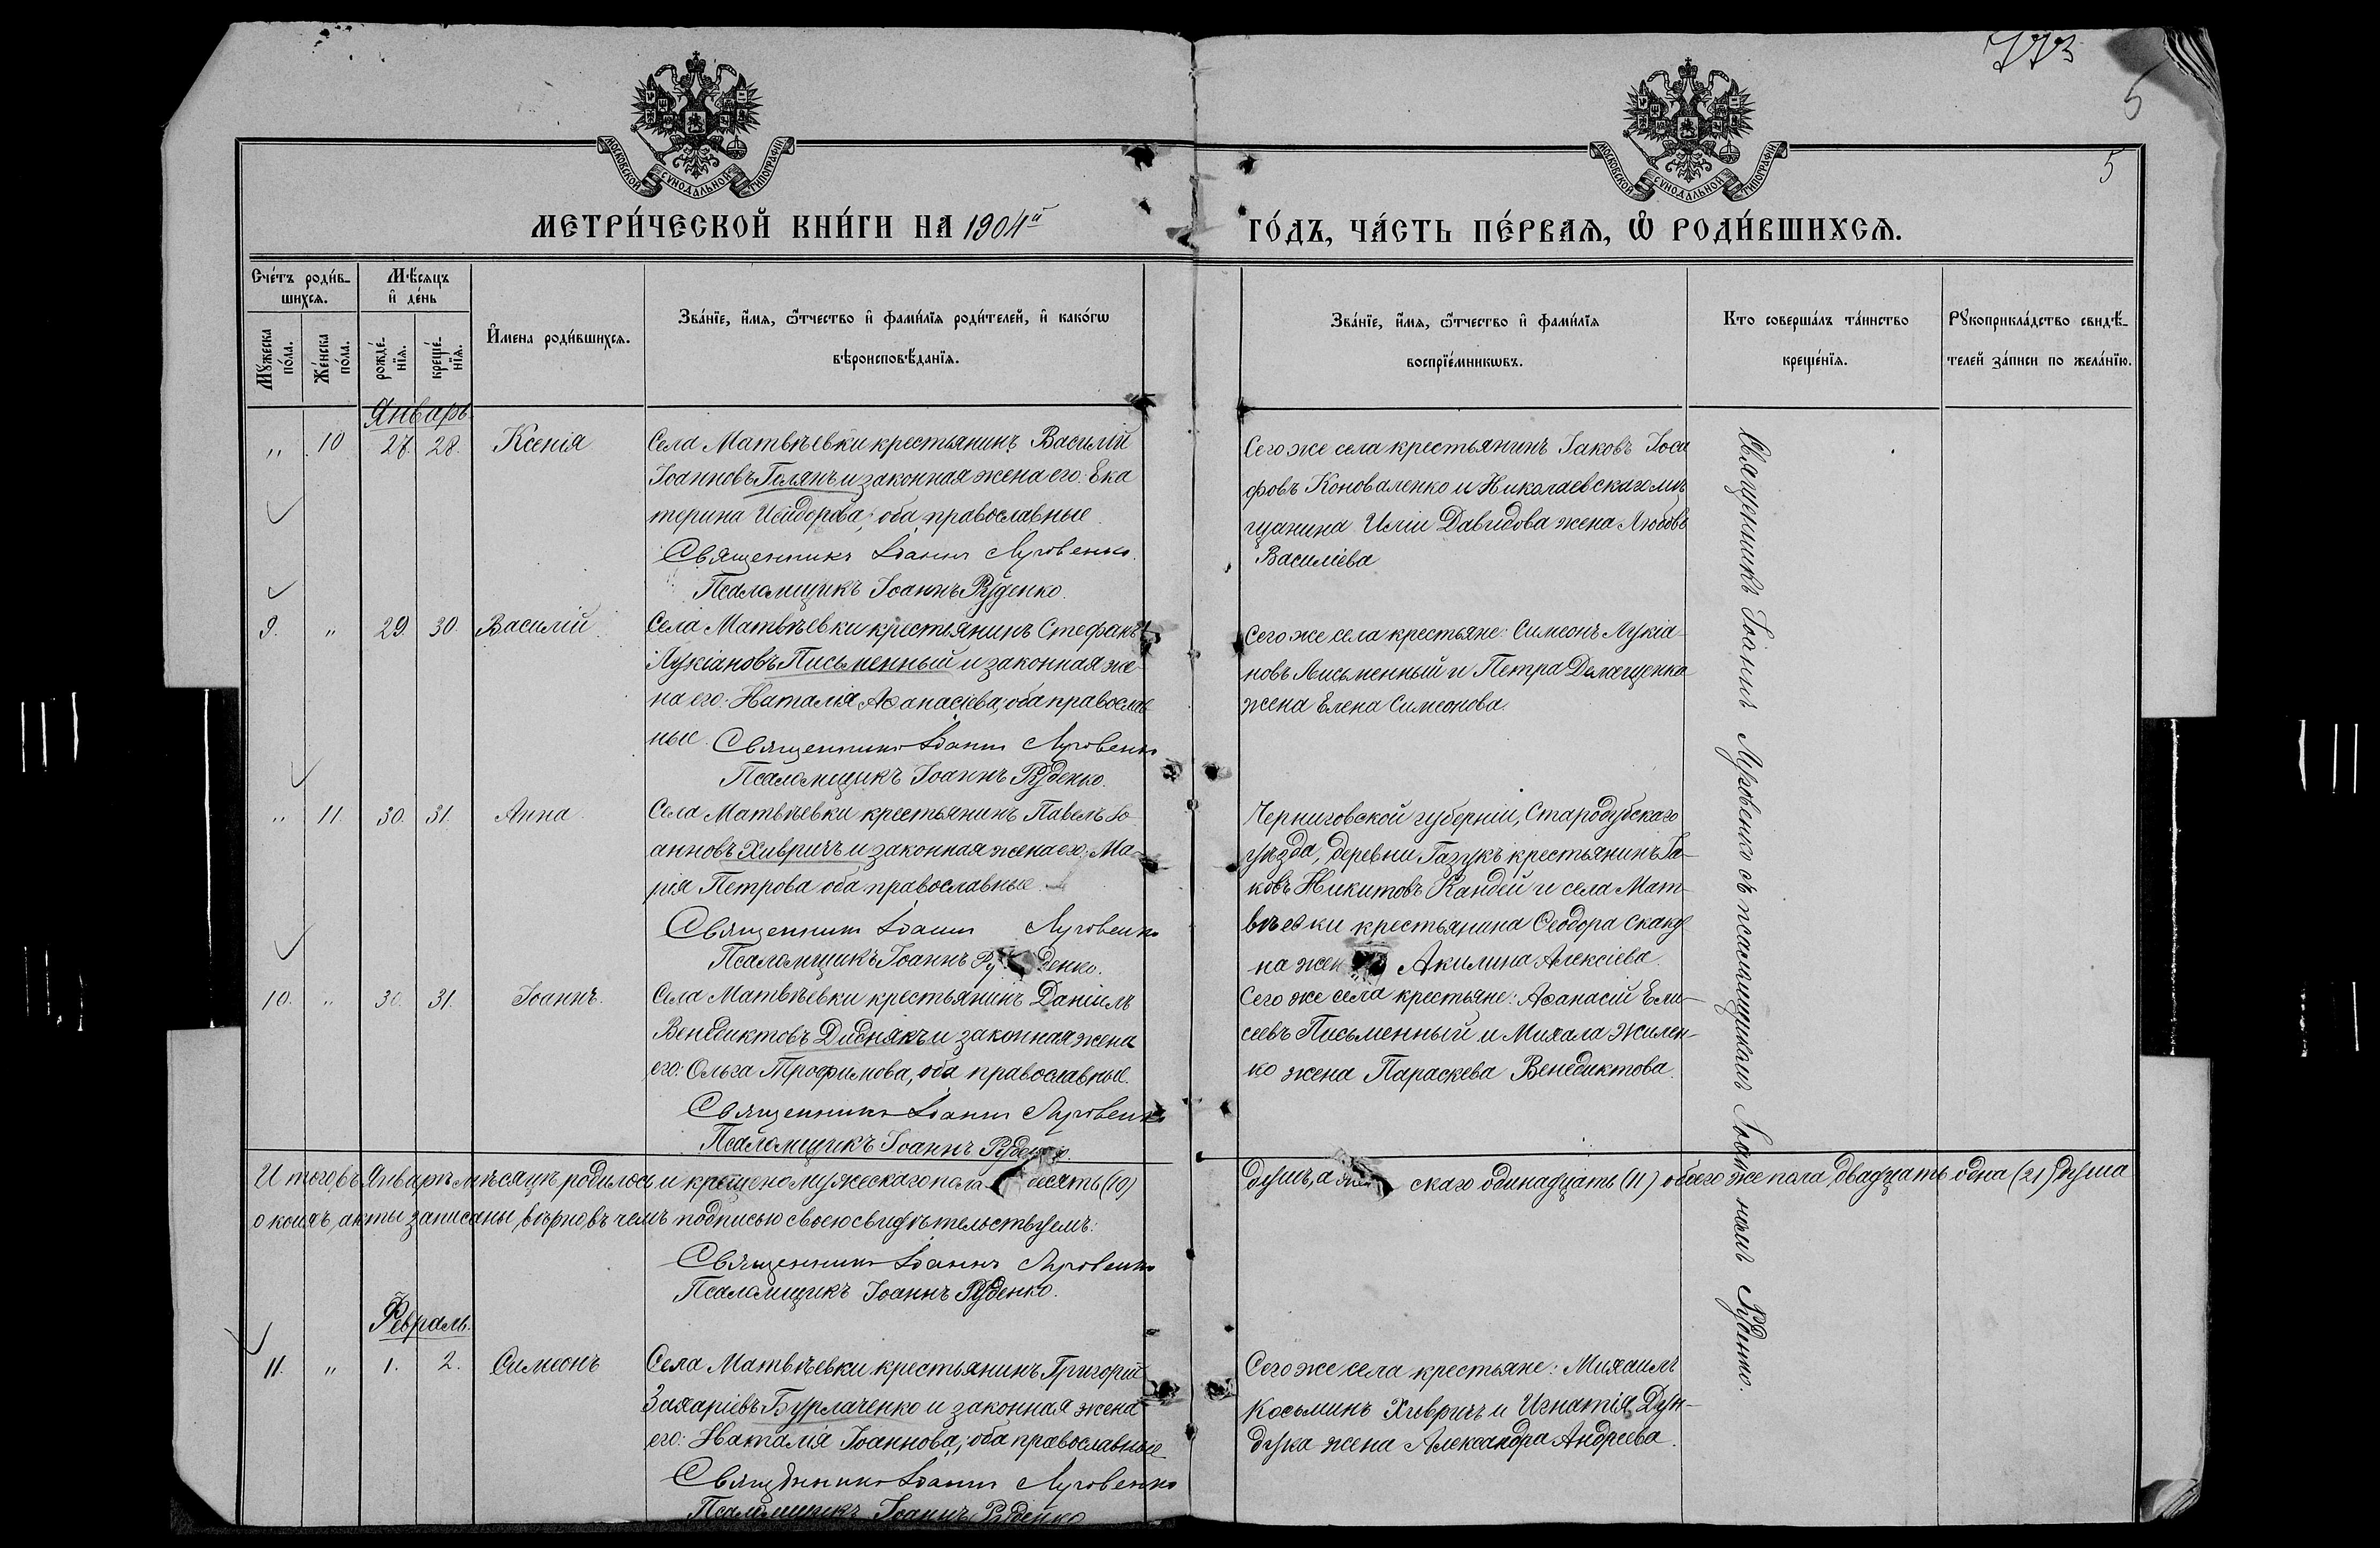 773
5
5
МОСКОВСКОЙ СѴНОДАЛЬНОЙ ТИПОГРАФІИ
МОСКОВСКОЙ СѴНОДАЛЬНОЙ ТИПОГРАФІИ
МЕТРИ́ЧЕСКОЙ КНИ́ГИ НА 1904й
ГО́ДЪ, ЧА́СТЬ ПЕ́РВАѦ, Ѡ҆ РОДИ́ВШИХСѦ.
Сче́тъ роди́в-
шихсѧ.
Мꙋ́жеска по́ла.
Же́нска по́ла.
Мѣ́сяцъ
и҆ де́нь
рожде́-нїѧ.
креще́-нїѧ.
И҆мена роди́вшихсѧ.
Зва́нїе, и҆́мѧ, ѻ҆́тчество и҆ фами́лїѧ роди́телей, и҆ како́гѡ
вѣроисповѣ́данїѧ.
Зва́нїе, и҆́мѧ, ѻ҆́тчество и҆ фами́лїѧ
воспрїе́мникѡвъ.
Кто соверша́лъ та́инство
креще́нїѧ.
Рꙋкоприкла́дство свидѣ́-
телей за́писи по жела́нїю.
Январь
" 10 27. 28. Ксенія
Села Матвѣевки крестьянинъ Василій
Іоанновъ Голянъ и законная жена его: Ека
терина Исидорова, оба православные
Священникъ Іоаннъ Луговенко.
Псаломщикъ Іоаннъ Руденко.
Сего же села крестьянинъ Іаковъ Іоси
фовъ Коноваленко и Николаевскаго мѣ
щанина Иліи Давидова жена Любовь
Василіева
9. " 29. 30. Василій
Села Матвѣевки крестьянинъ Стефанъ
Лукіановъ Письменный и законная же-
на его: Наталія Аѳанасіева, оба православ
ные. Священникъ Іоаннъ Луговенко
Псаломщикъ Іоаннъ Руденко.
Сего же села крестьяне: Симеонъ Лукіа-
новъ Письменный и Петра
жена Елена Симеонова.
" 11. 30. 31. Анна
Села Матвѣевки крестьянинъ Павелъ Іо-
анновъ Хивричъ и законная жена его: Ма-
рія Петрова оба православные.
Священникъ Іоаннъ Луговенко
Псаломщикъ Іоаннъ Руденко.
Черниговской губерніи, Стародубскаго
уѣзда, деревни Газукъ крестьянинъ Іа-
ковъ Никитовъ Кандей и села Мат-
вѣевки крестьянина Ѳеодора Скаку
на жена Акилина Алексіева.
10. " 30. 31. Іоаннъ.
Села Матвѣевки крестьянинъ Даніилъ
Венедиктовъ Диднякъ и законная жена
его: Ольга Трофимова, оба православные.
Священникъ Іоаннъ Луговенко
Псаломщикъ Іоаннъ Руденко.
Сего же села крестьяне: Аѳанасій Ели-
сеевъ Письменный и Михаила Жилен-
ко жена Параскева Венедиктова.
Итого въ Январѣ мѣсяцѣ родилось и крещено мужескаго пола десять (10)
душъ, а женскаго одинадцать (11) обоего же пола двадцать одна (21) душа
о коихъ акты записаны вѣрно, въ чемъ подписью своею свидѣтельствуемъ:
Священникъ Іоаннъ Луговенко
Псаломщикъ Іоаннъ Руденко.
Февраль.
11. " 1. 2. Симеонъ
Села Матвѣевки крестьянинъ Григорій
Захаріевъ Бурлаченко и законная жена
его: Наталія Іоаннова; оба православные
Священникъ Іоаннъ Луговенко
Псаломщикъ Іоаннъ Руденко
Сего же села крестьяне: Михаилъ
Косьминъ Хивричъ и Игнатія Дун-
дука жена Александра Андреева.
Священникъ Іоаннъ Луговенко съ псаломщикомъ Іоанномъ Руденко.